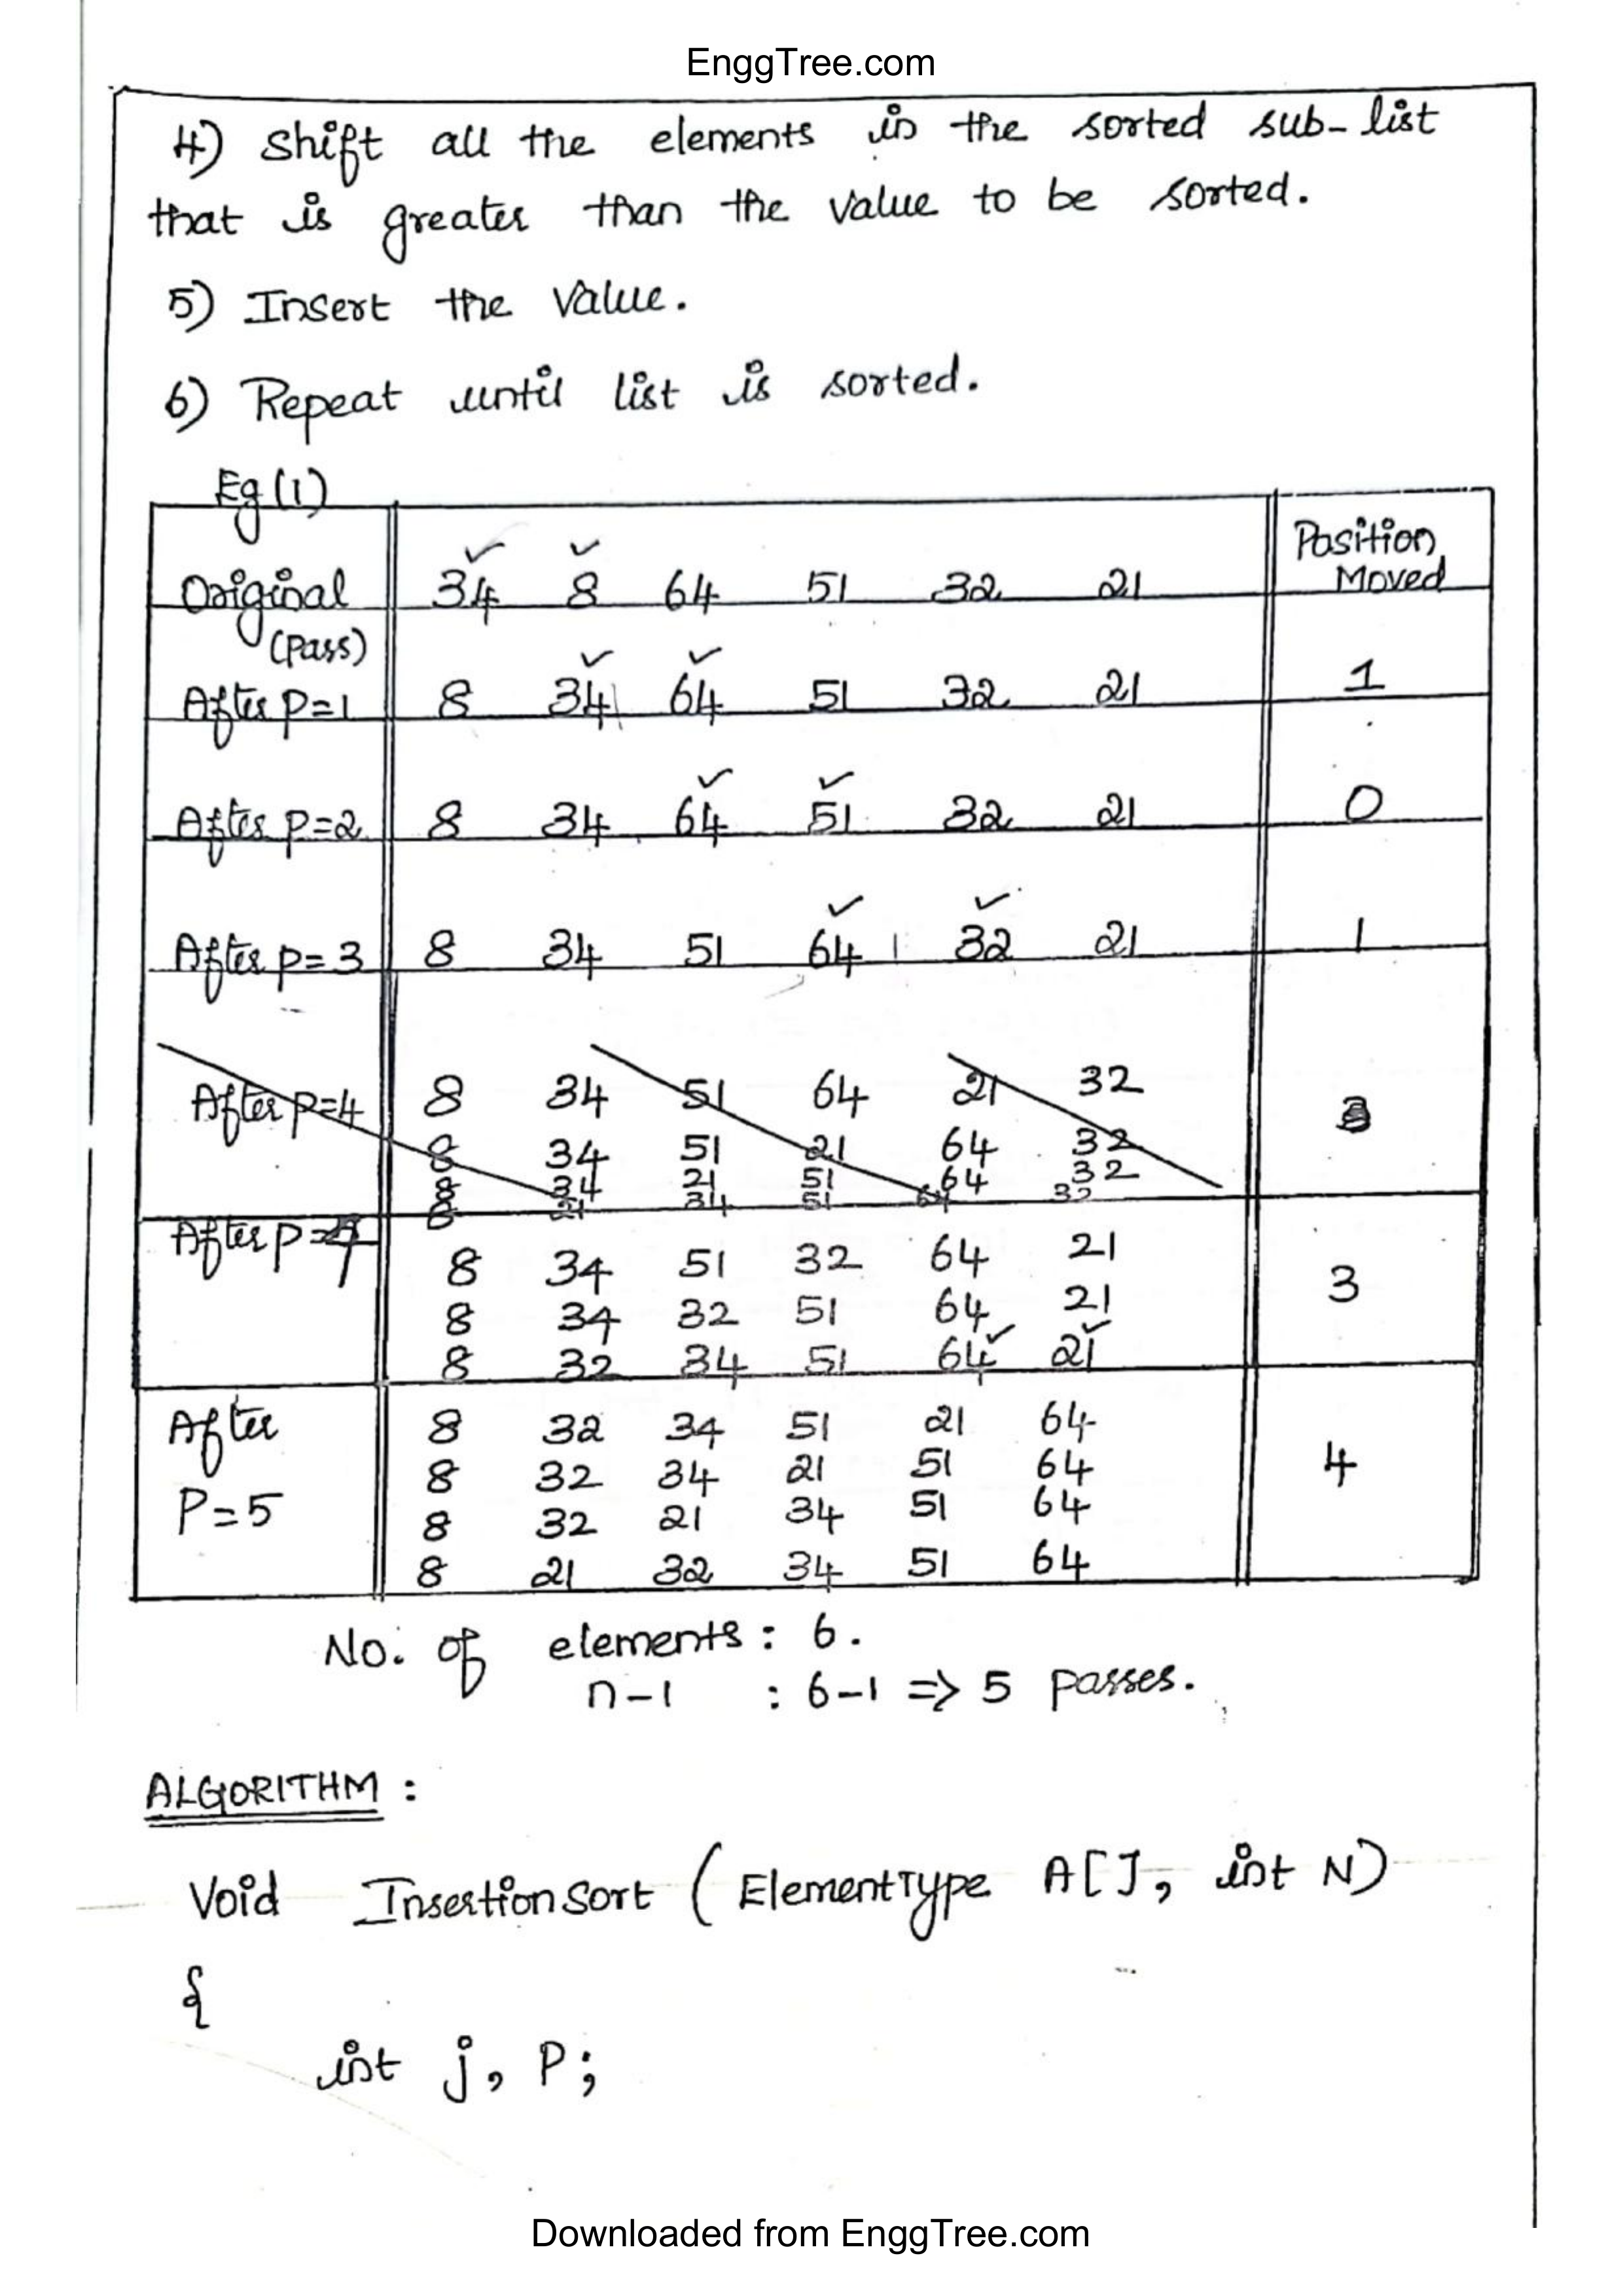 EnggTree.com
4) Shift all the elements in the sorted sub-list
that is greater than the value to be sorted.
5) Insert the value.
6) Repeat until list is sorted.
Eg (1)
Original 34 8 64 51 32 21 Position Moved
(Pass)
After P=1 8 34 64 51 32 21 1
After P=2 8 34 64 51 32 21 0
After P=3 8 34 51 64 32 21 1
After P=4 8 34 51 64 21 32
8 34 51 21 64 32
8 34 21 51 64 32
8 21 34 51 64 32
After P=4
8 34 51 32 64 21 3
8 34 32 51 64 21
8 32 34 51 64 21
After 8 32 34 51 21 64
8 32 34 21 51 64 4
P=5 8 32 21 34 51 64
8 21 32 34 51 64
No. of elements : 6.
n-1 : 6-1 => 5 passes.
ALGORITHM :
Void Insertionsort (ElementType A[], int N)
{
int j, P;
Downloaded from EnggTree.com